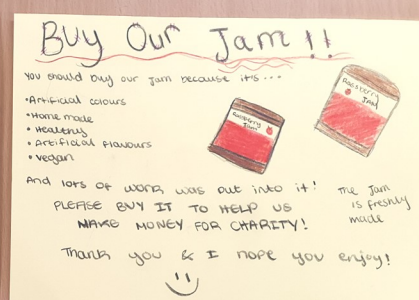 Buy Our Jam!!
You should buy our jam because it's...
•Artificial colours
•Home made
•Healthy
•Artificial flavours
•Vegan
Raspberry
Jam
Raspberry
JAM
And lots of work was put into it!
PLEASE BUY IT TO HELP US
MAKE MONEY FOR CHARITY!
The Jam
is freshly
made
Thank you & I hope you enjoy!